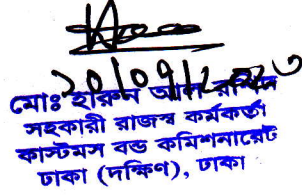 ২০/০৭/২০২৩
মোঃ হারুন আল রশিদ
সহকারী রাজস্ব কর্মকর্তা
কাস্টমস বন্ড কমিশনারেট
ঢাকা (দক্ষিণ), ঢাকা